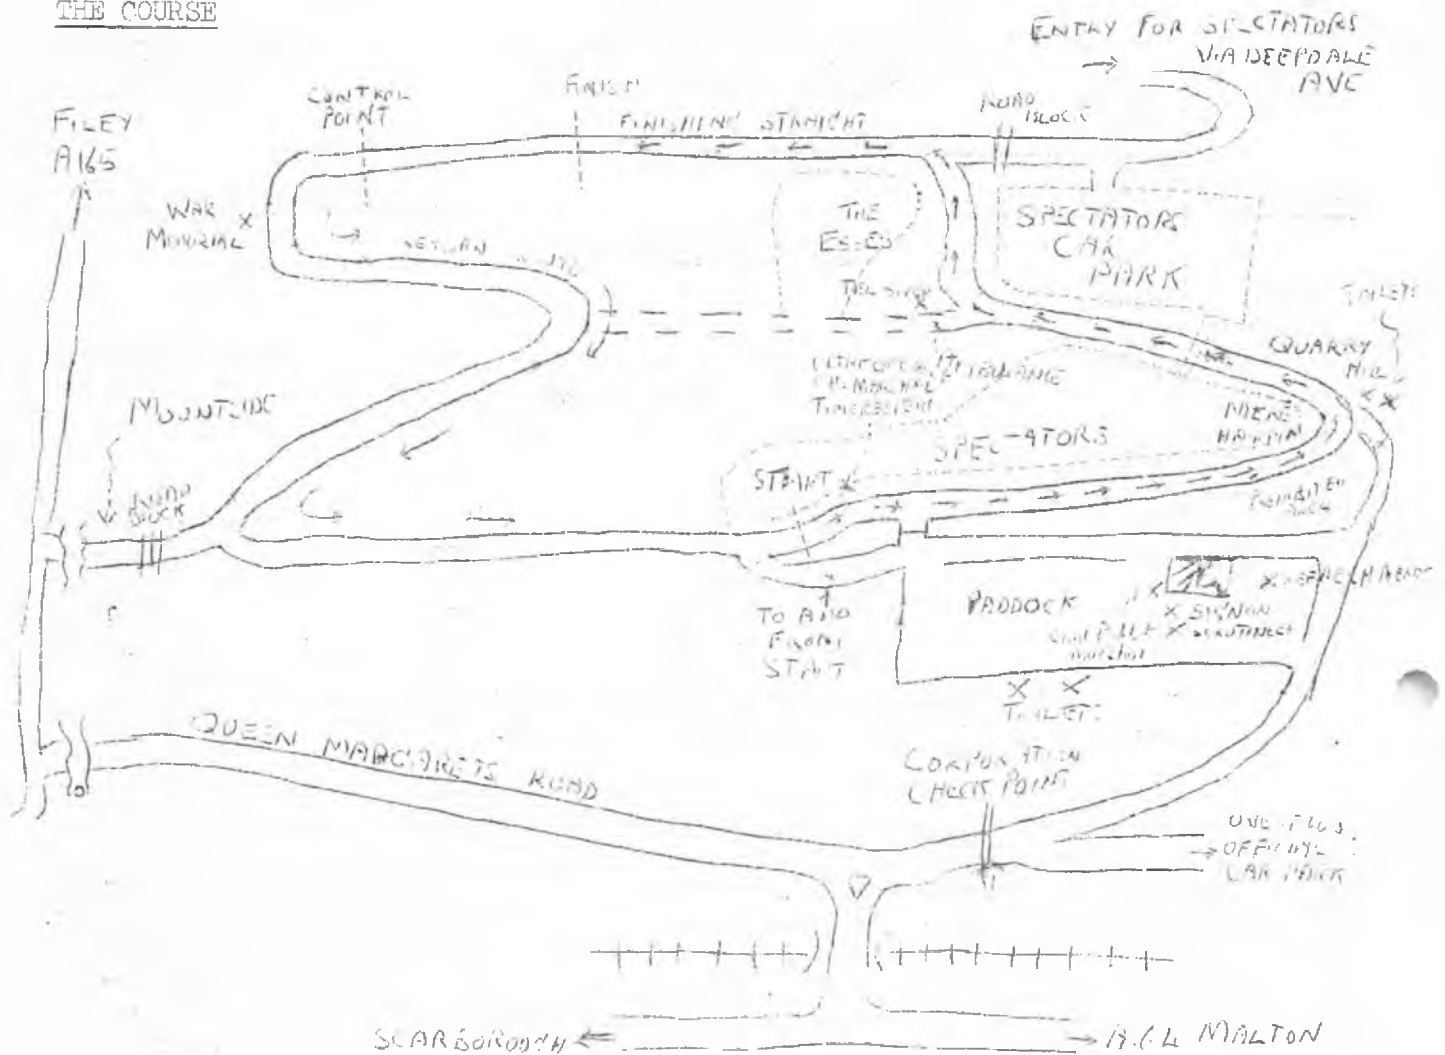 THE COURSE
ENTRY FOR SPECTATORS
VIA DEEPDALE
AVE
FILEY
A165
CONTROL
POINT
FINISH
FINISHING STRAIGHT
ROAD
BLOCK
WAR
MEMORIAL
RETURN
THE
ESSES
SPECTATORS
CAR
PARK
TOILETS
QUARRY
HILL
MOUNTSIDE
ROAD
BLOCK
AMBULANCE
MERE
HAIRPIN
SPECTATORS
START
PROHIBITED
TO AND
FROM
START
PADDOCK
REFRESHMENTS
SIGN ON
SCRUTINEER
TOILETS
QUEEN MARGARETS ROAD
CORPORATION
CHECK POINT
OFFICIAL
CAR PARK
SCARBOROUGH
A.64 MALTON